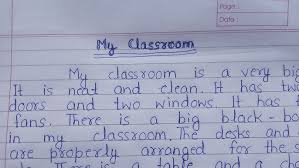 Page :
Date :
My Classroom
My classroom is a very big
It is neat and clean. It has two
doors and two windows. It has
fans. There is a big black-bo
in my classroom. The desks and
are properly arranged for the
There is a table and a